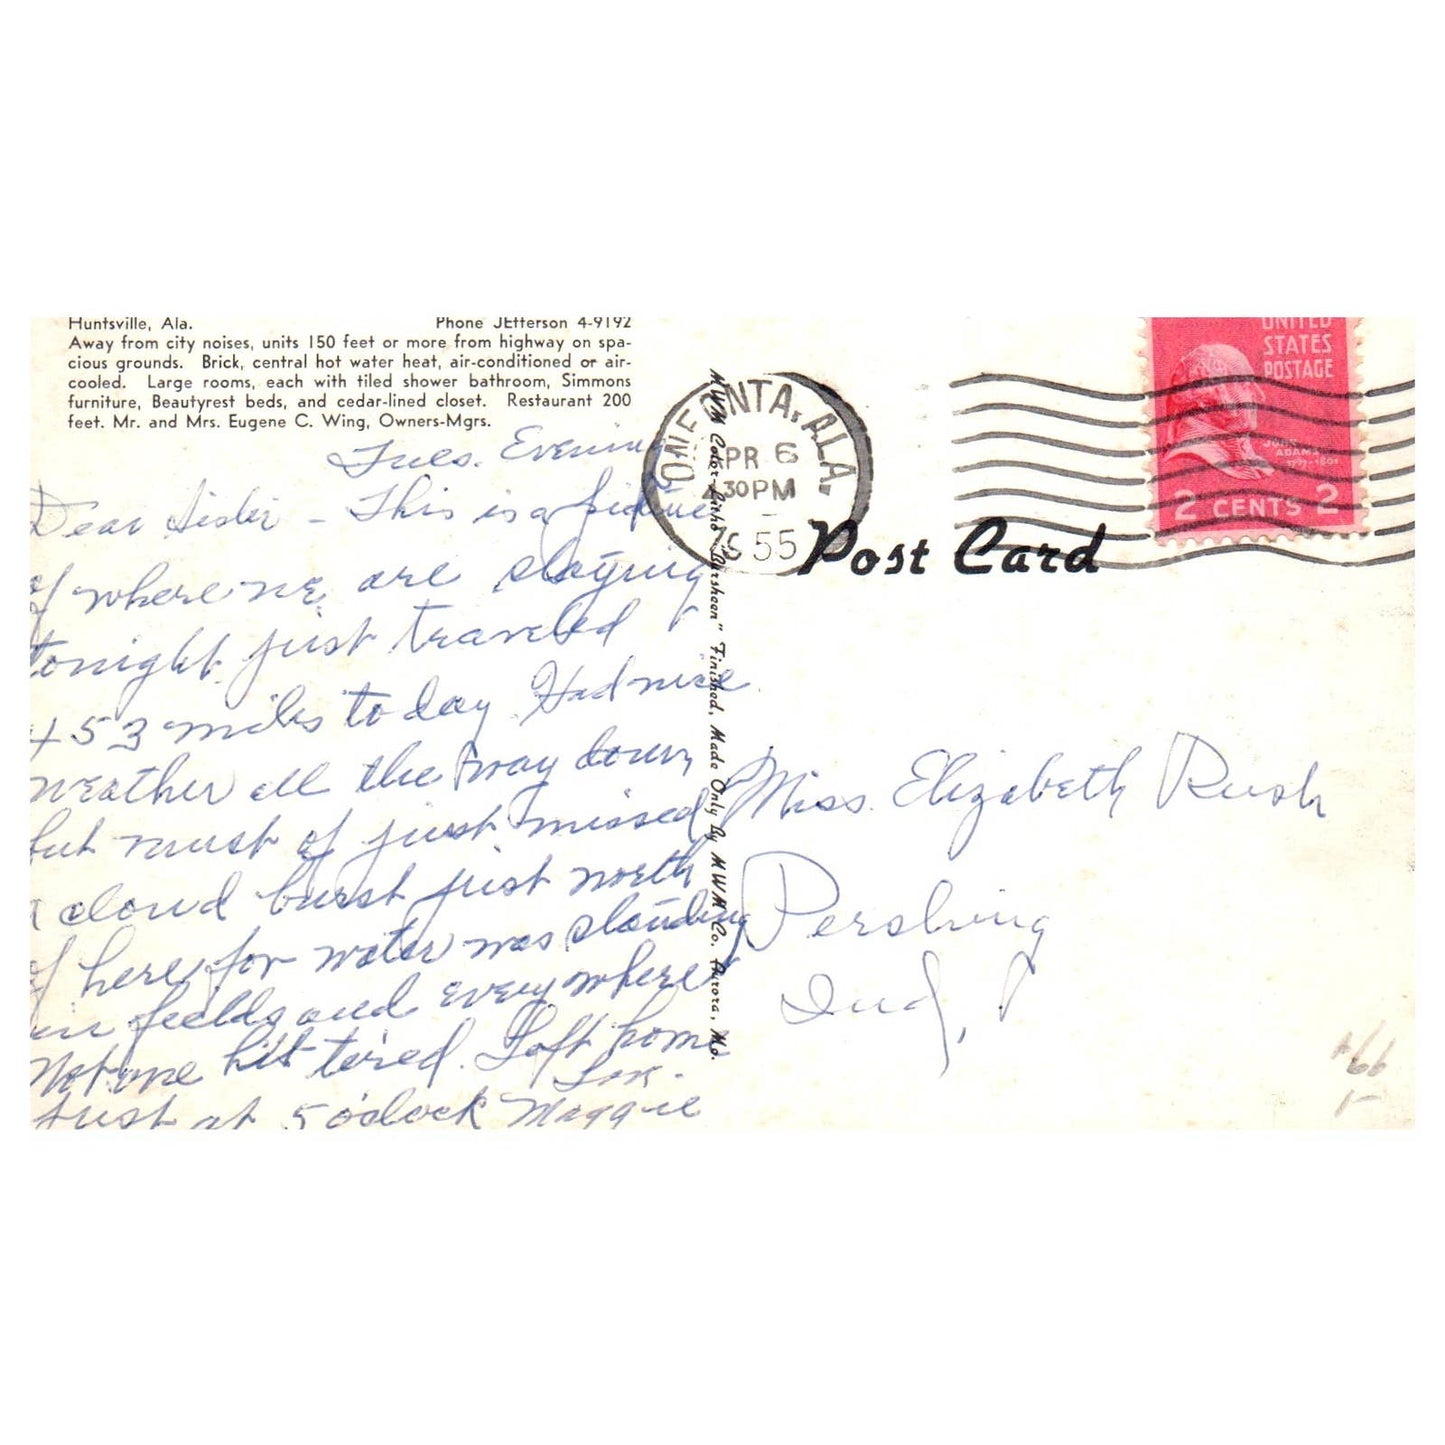 Huntsville, Ala. Phone JEfferson 4-9192
Away from city noises, units 150 feet or more from highway on spa-
cious grounds. Brick, central hot water heat, air-conditioned or air-
cooled. Large rooms, each with tiled shower bathroom, Simmons
furniture, Beautyrest beds, and cedar-lined closet. Restaurant 200
feet. Mr. and Mrs. Eugene C. Wing, Owners-Mgrs.
Tues. Evening
Dear Sister - This is a picture
of where we are staying
tonight just traveled
453 miles today. Had nice
weather all the way down
but must of just missed
a cloud burst just north
of here, for water was standing
in fields and everywhere
Not one bit tired. Left home
just at 5 o'clock Maggie
MWM Color-Litho "Larsheen" Finished, Made Only By MWM Co. Aurora, Mo.
ONEONTA, ALA.
APR 6
30 PM
1955
Post Card
UNITED
STATES
POSTAGE
JOHN
ADAMS
1797-1801
2 CENTS 2
Miss. Elizabeth Rush
Pershing
Ind,